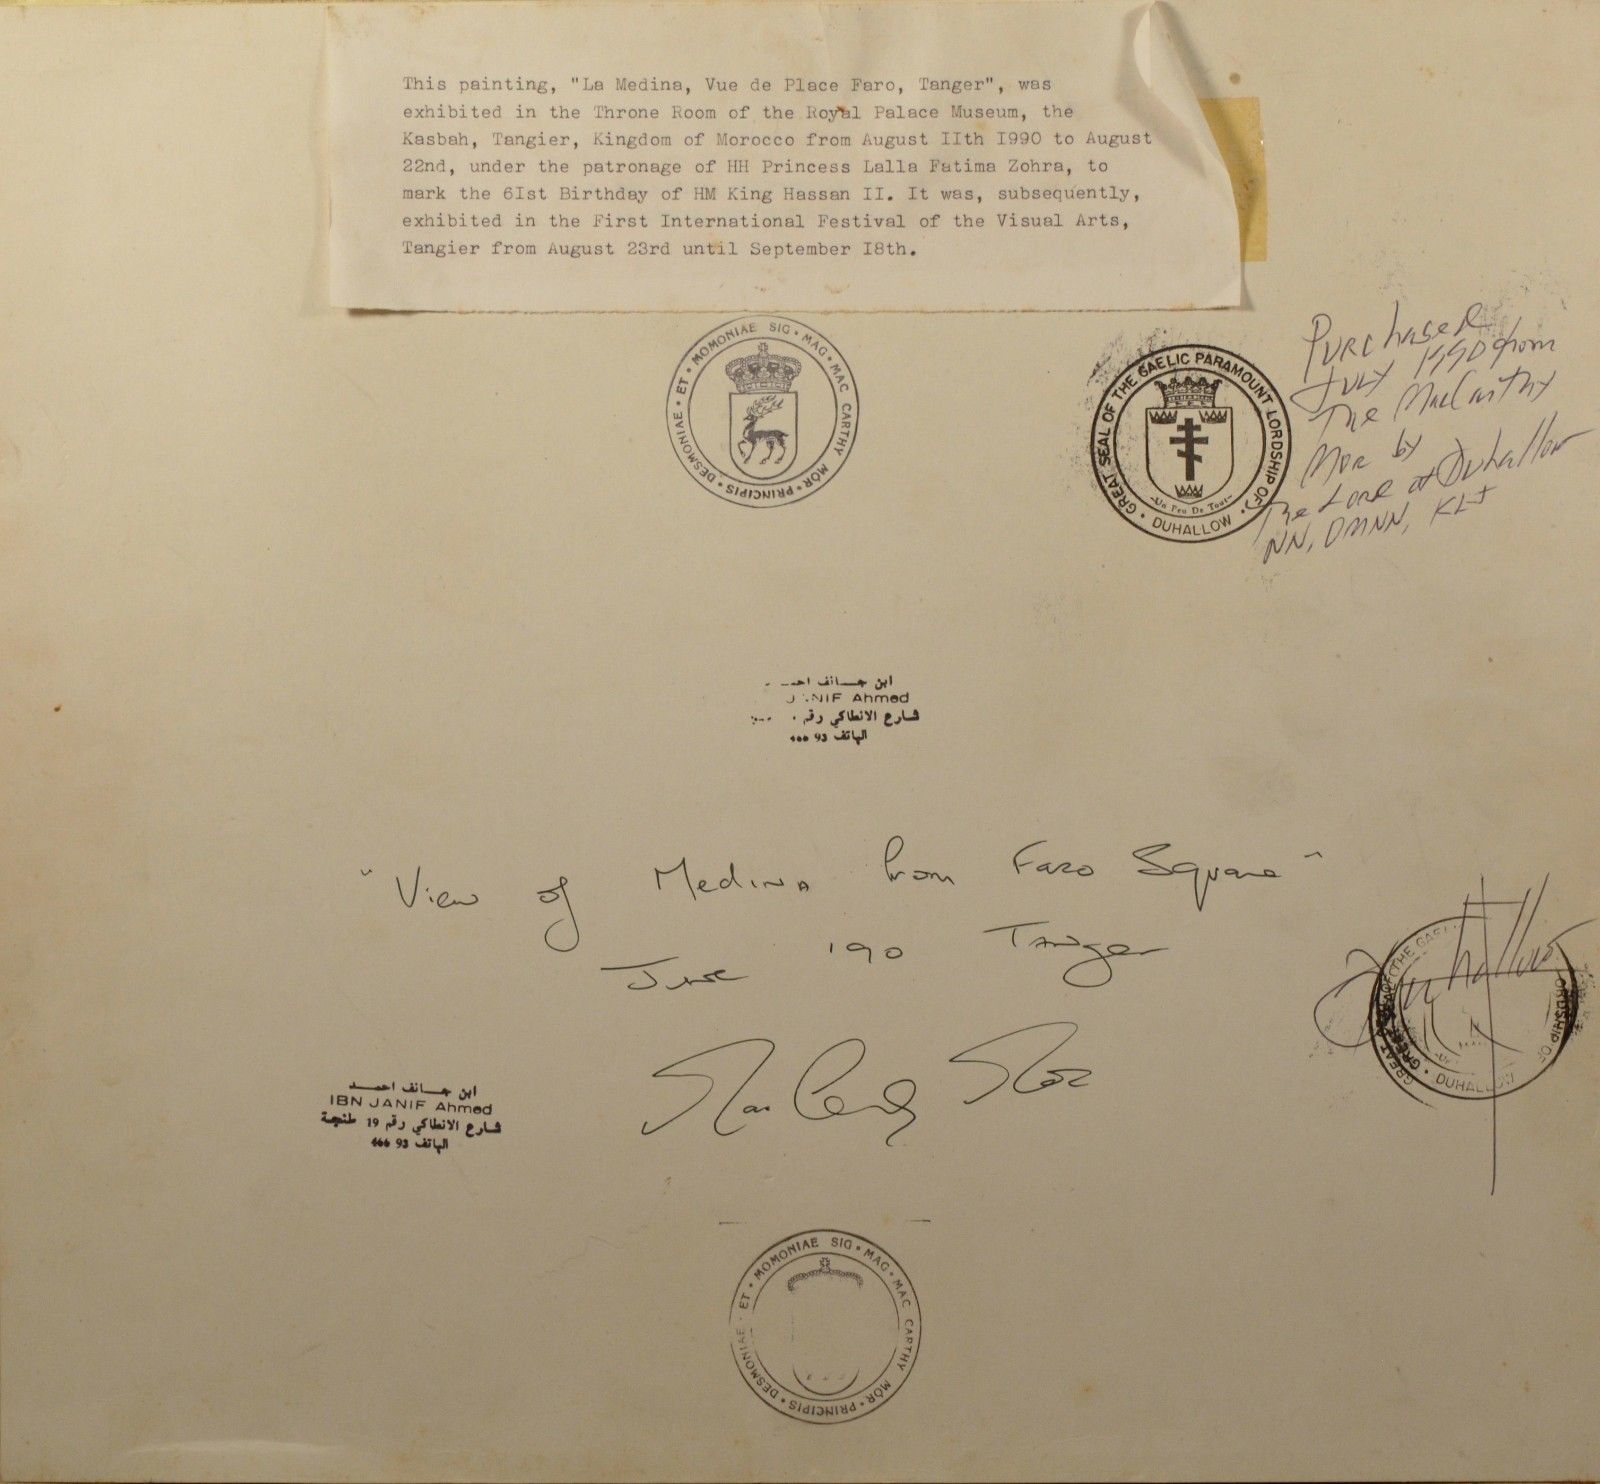 This painting, "La Medina, Vue de Place Faro, Tanger", was
exhibited in the Throne Room of the Royal Palace Museum, the
Kasbah, Tangier, Kingdom of Morocco from August IIth I990 to August
22nd, under the patronage of HH Princess Lalla Fatima Zohra, to
mark the 6Ist Birthday of HM King Hassan II. It was, subsequently,
exhibited in the First International Festival of the Visual Arts,
Tangier from August 23rd until September I8th.
SIG • MAG • MAC CARTHY MÓR • PRINCIPIS • DESMONIAE • ET • MOMONIAE
• GREAT SEAL OF THE GAELIC PARAMOUNT LORDSHIP OF •
DUHALLOW
-Un Peu De Tout-
Purchased
July 1990 from
The MacCarthy
Mor by
The Lord of Duhallow
NN, DMNN, KLJ
ابن جانف احمد
JANIF Ahmed
شارع الانطاكي رقم
الهاتف 93 466
"View of Medina from Faro Square"
June '90 Tanger
Mac Carthy Mor
Duhallow
GREAT SEAL OF THE GAEL LORDSHIP OF
DUHALLOW
ابن جانف احمد
IBN JANIF Ahmed
شارع الانطاكي رقم 19 طنجة
الهاتف 93 466
SIG • MAG • MAC CARTHY MÓR • PRINCIPIS • DESMONIAE • ET • MOMONIAE